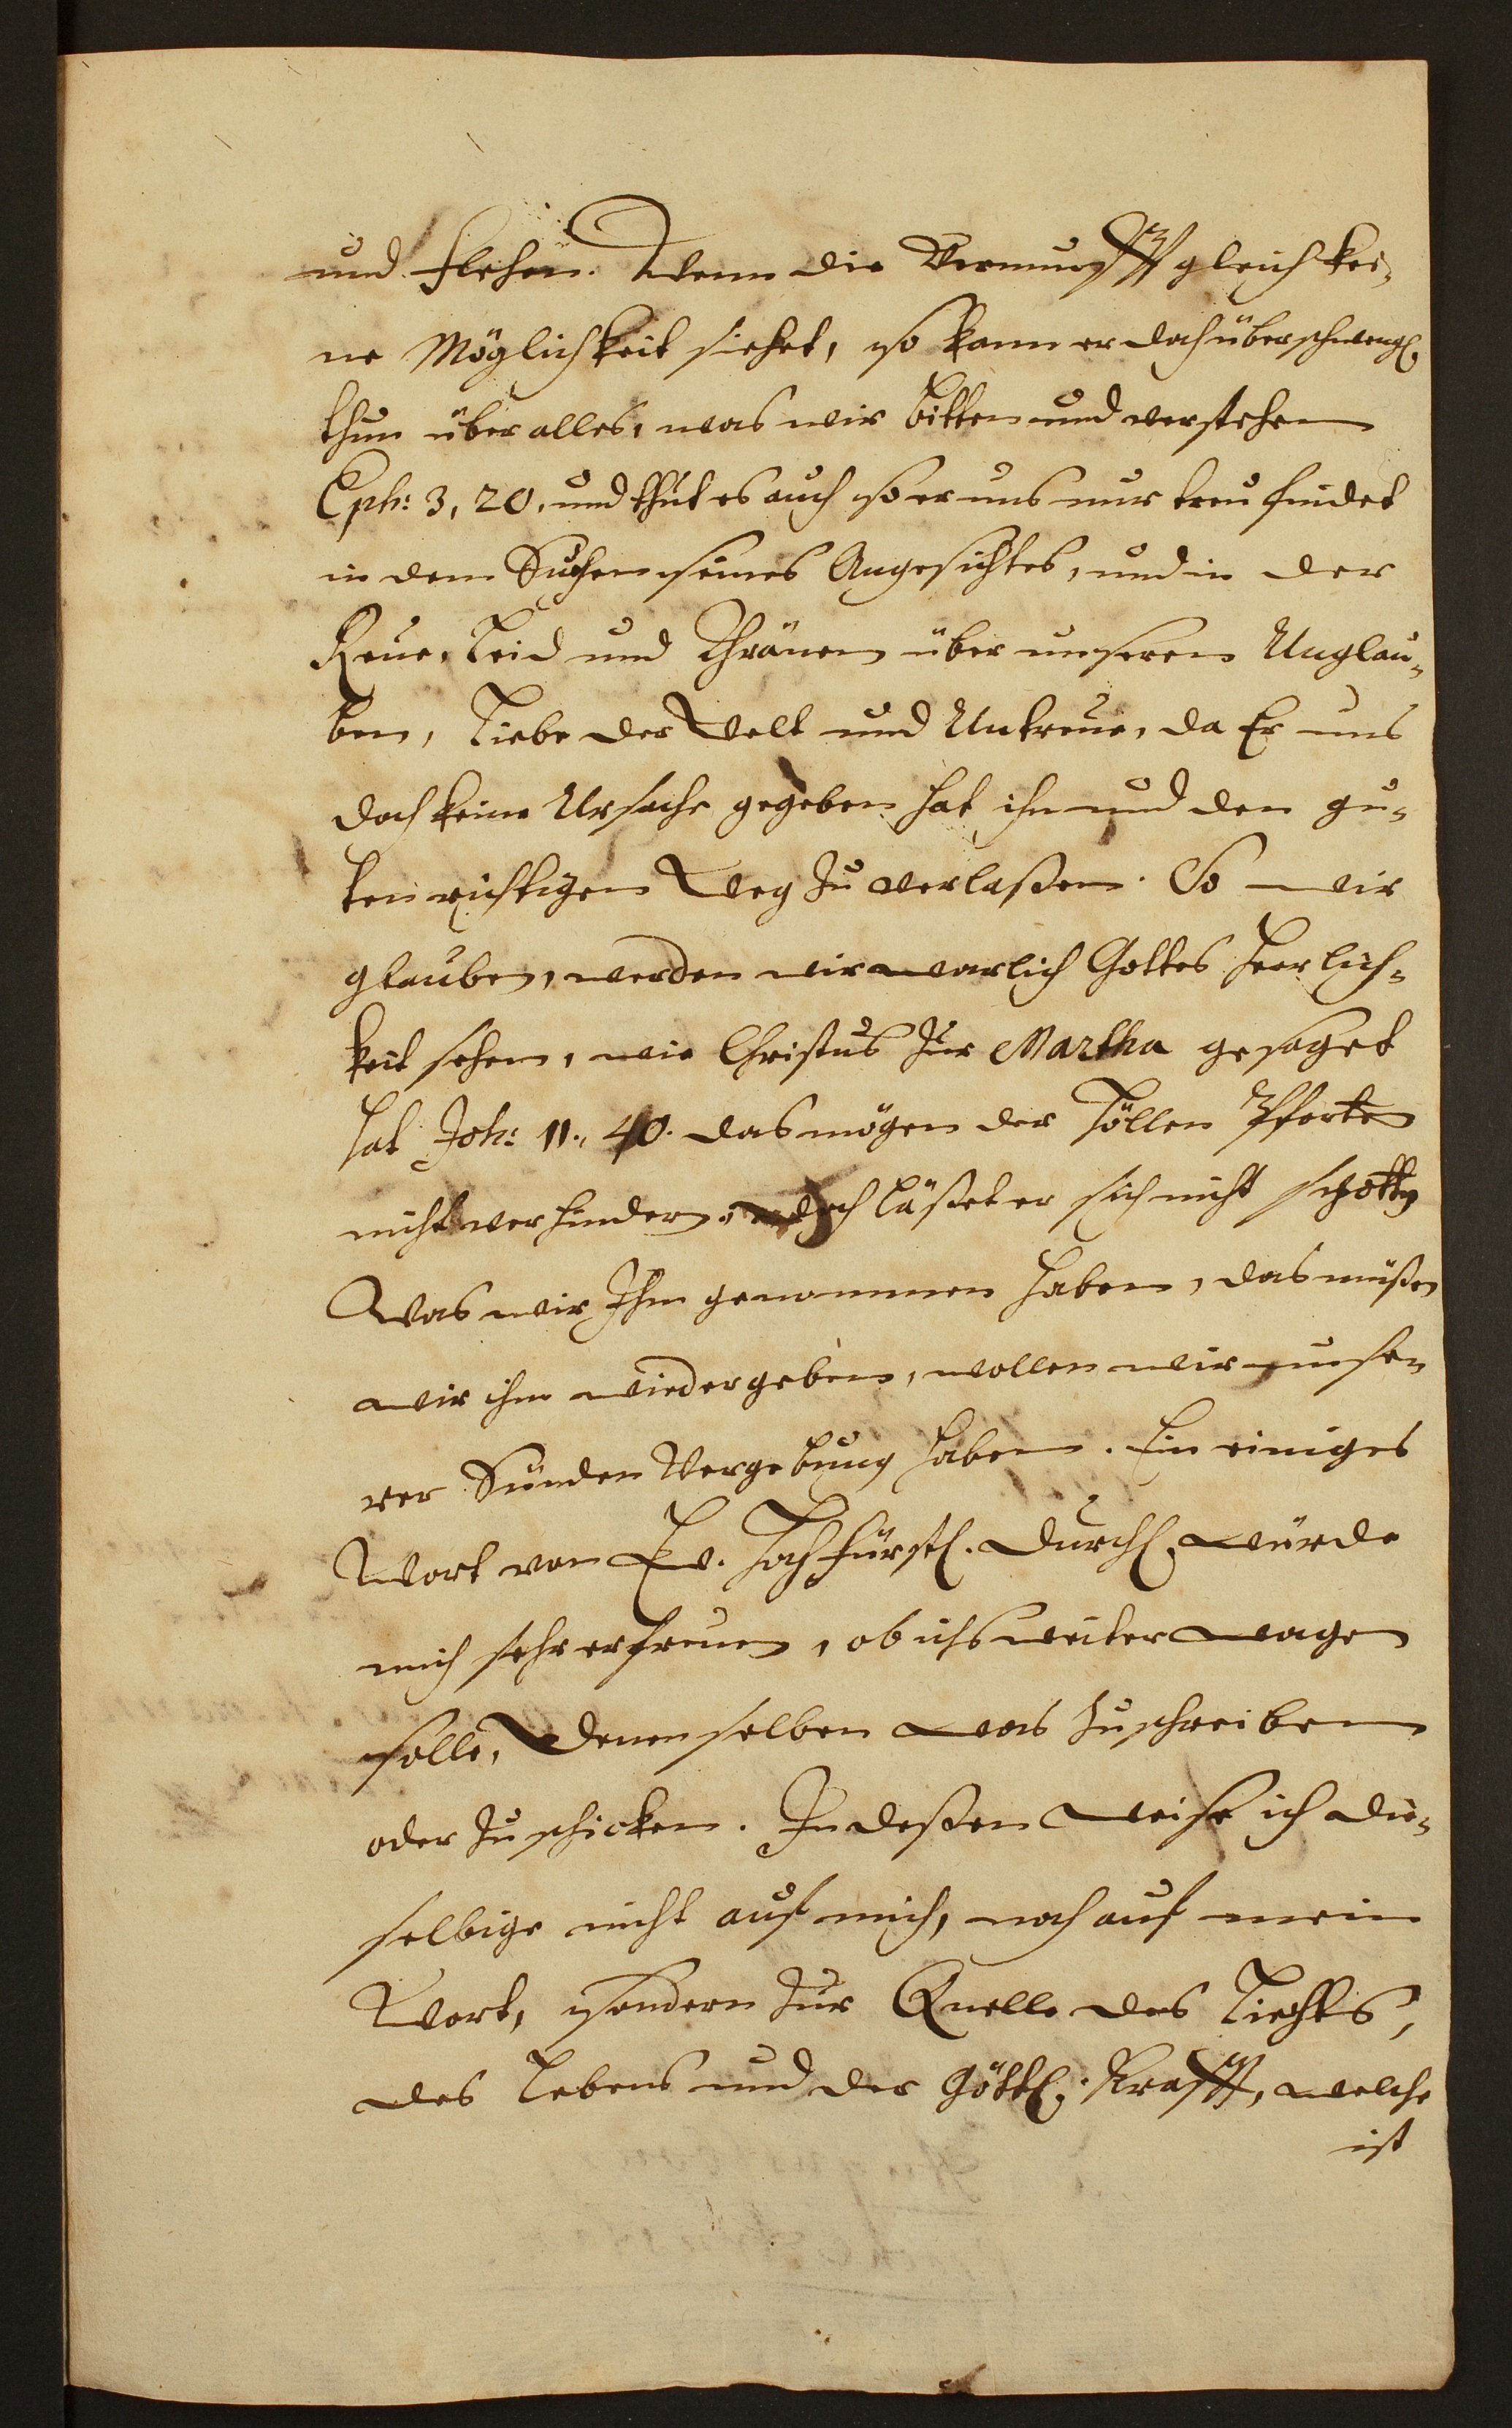 und flehen. Wenn die Vernunfft gleich kei-
ne Möglichkeit siehet, so kann er doch überschwengl.
thun über alles, was wir bitten und verstehen
Eph: 3, 20. und thut es auch so er uns nur treu findet
in dem Suchen seines Angesichtes, und in der
Reue, Leid und Thränen über unseren Unglau-
ben, Liebe der Welt und Untreue, da Er uns
doch keine Ursache gegeben hat ihn und den gu-
ten richtigen Weg zu verlaßen. So wir
glauben, werden wir warlich Gottes Herrlich-
keit sehen, wie Christus zur Martha gesaget
hat Joh: 11., 40. das mögen der Höllen Pforten
nicht verhindern, doch läßet er sich nicht spotten
Was wir Ihm genommen haben, das müßen
wir ihm wiedergeben, wollen wir unse-
rer Sünden Vergebung haben. Ein einiges
Wort von Ew. Hochfürstl. Durchl. würde
mich sehr erfreuen, ob ichs weiter wagen
solle, Denenselben was zuschreiben
oder zuschicken. Indeßen weise ich die-
selbige nicht auf mich, noch auf mein
Wort, sondern zur Quelle des Liechts,
des Lebens und der Göttl. Krafft, welche
ist